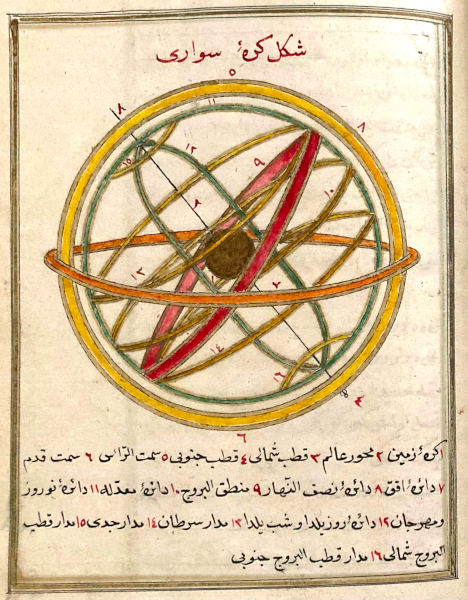 شكل كرۀ سواری
۵
۱۱
۸
۸
۱۲
۱۵
۹
۱۰
۲
۱۳
۲
۱۴
۱۶
۴
۶
۱ كرۀ زمین ۲ محور عالم ۳ قطب شمالی ۴ قطب جنوبی ۵ سمت الرّاس ۶ سمت قدم
۷ دائرۀ افق ۸ دائرۀ نصف النّهار ۹ منطق البروج ۱۰ دائرۀ معدّله ۱۱ دائرۀ نوروز
و مهرجان ۱۲ دائرۀ روز یلدا و شب یلدا ۱۳ مدار سرطان ۱۴ مدار جدی ۱۵ مدار قطب
البروج شمالی ۱۶ مدار قطب البروج جنوبی